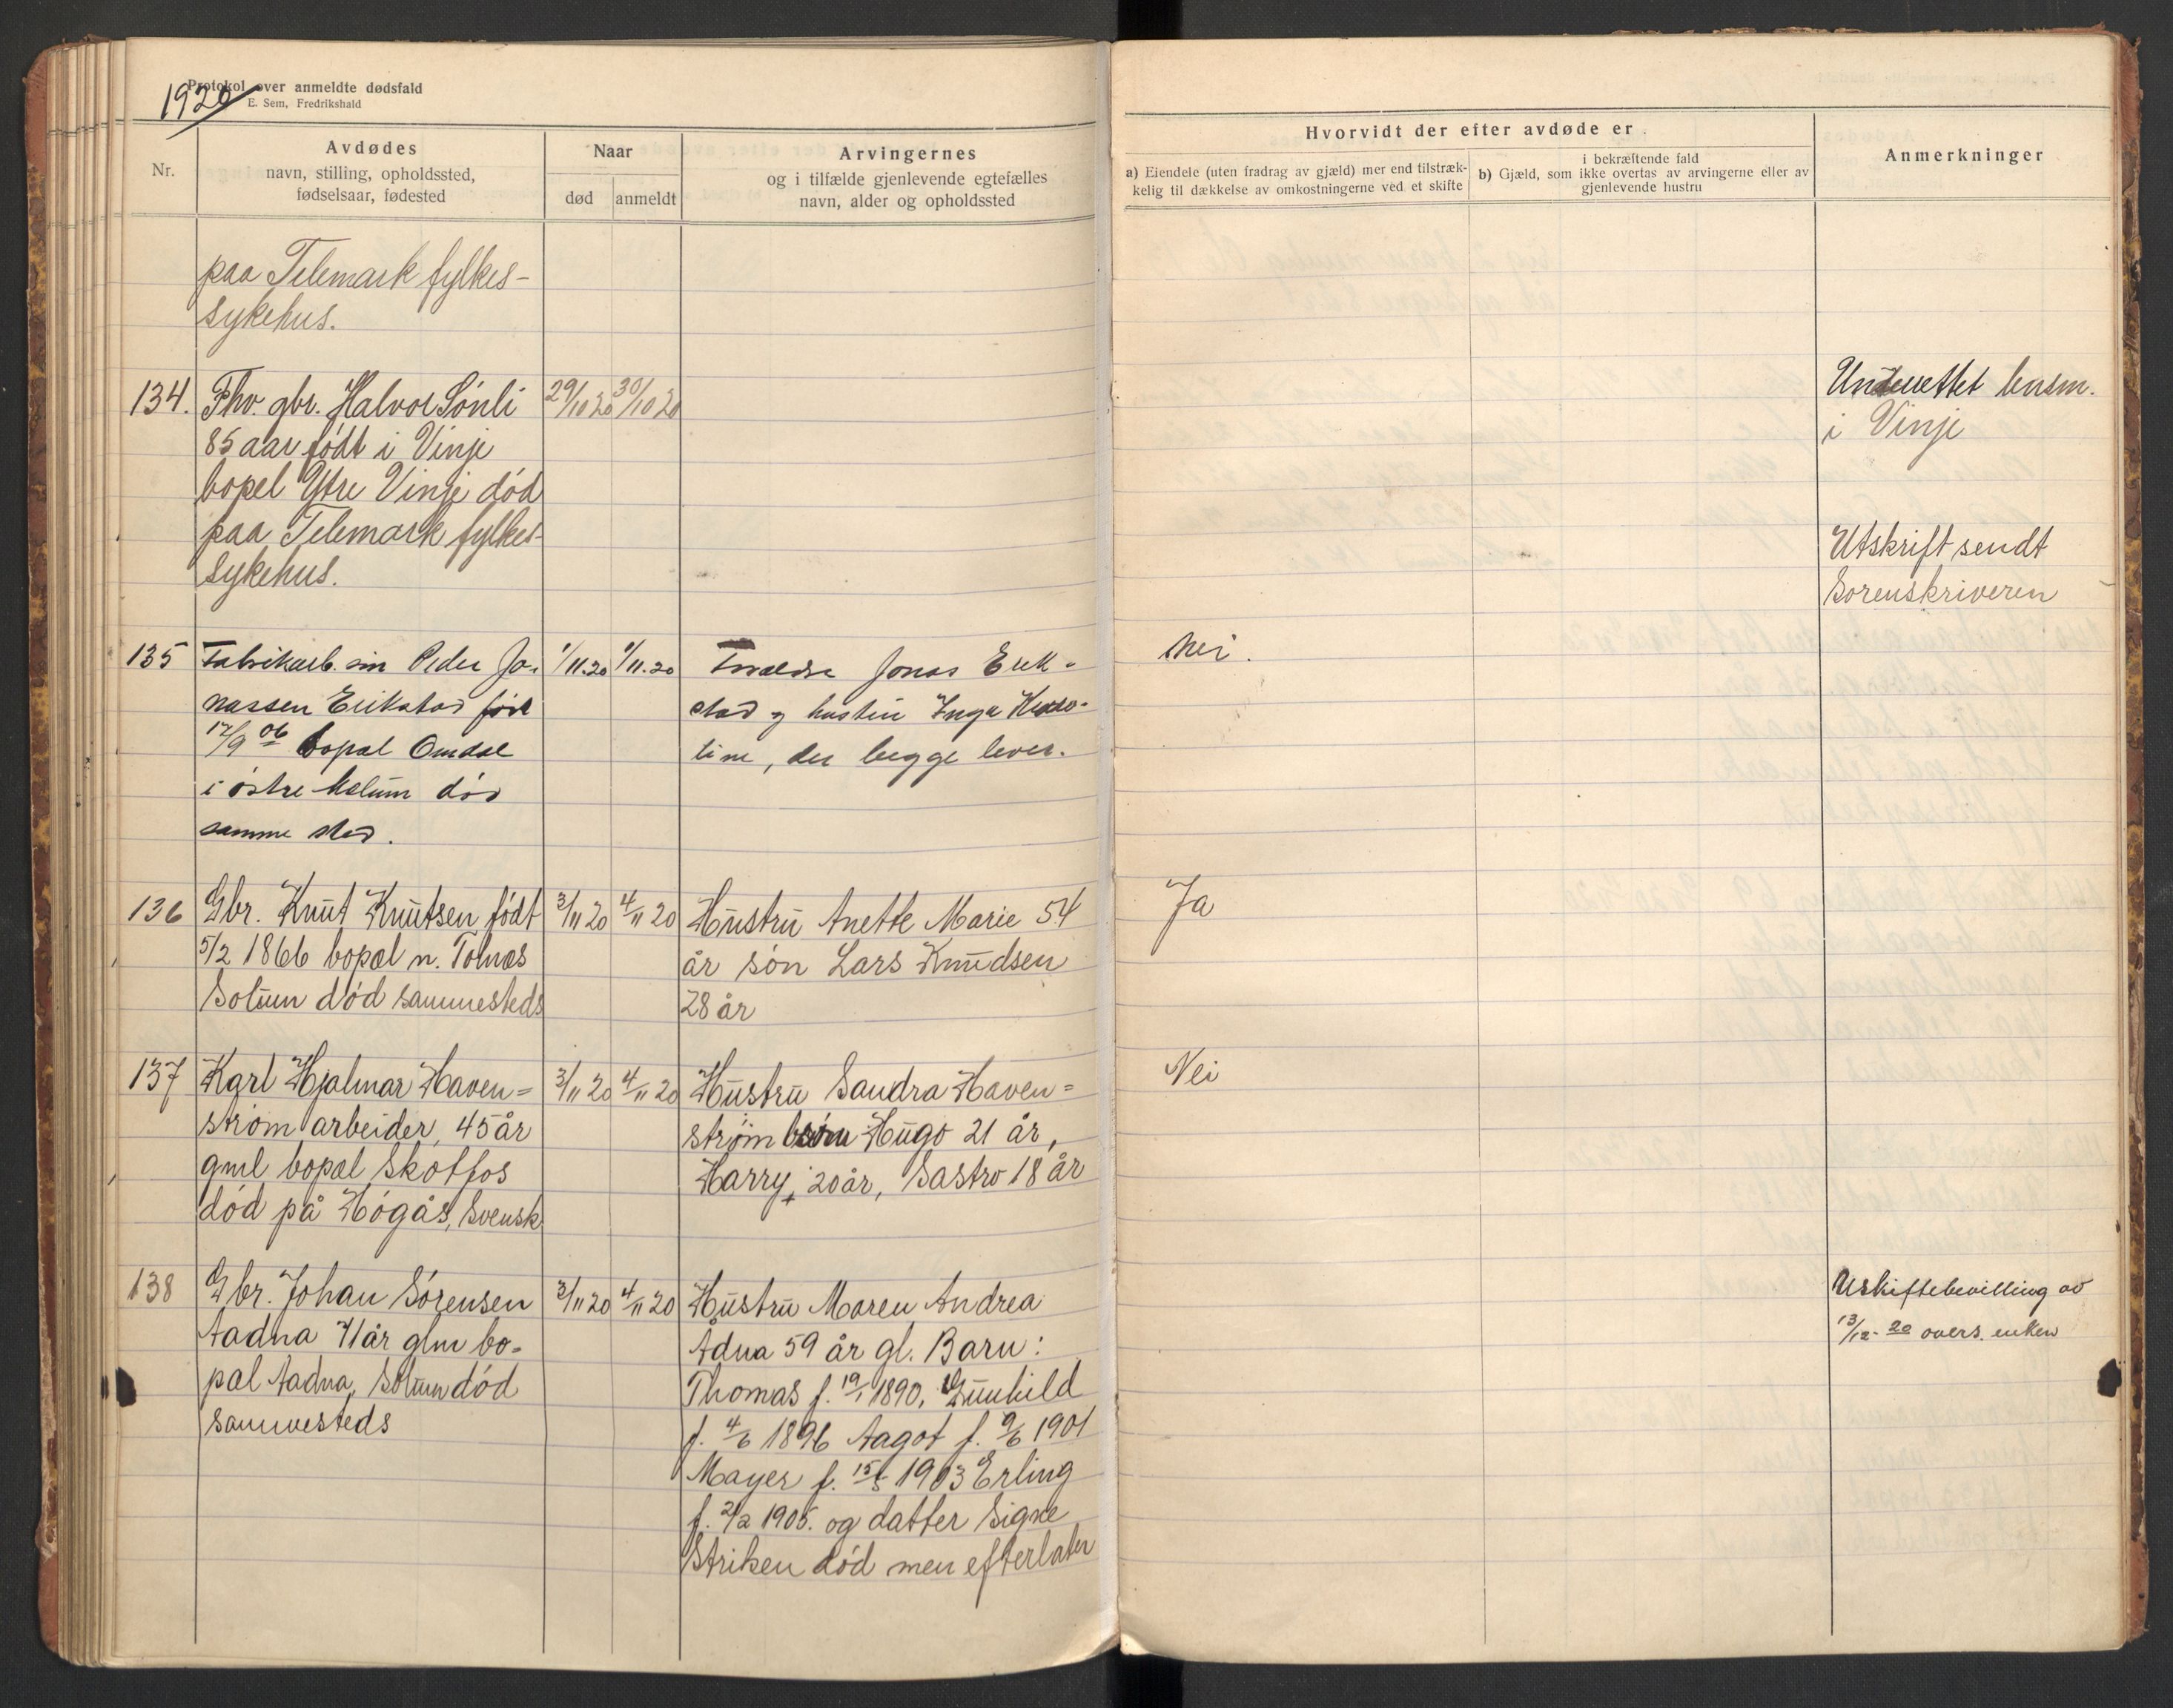 Protokol over anmeldte dødsfald
1920
E. Sem, Fredrikshald
Nr.
Avdødes
navn, stilling, opholdssted,
fødselsaar, fødested
Naar
død
anmeldt
Arvingernes
og i tilfælde gjenlevende egtefælles
navn, alder og opholdssted
Hvorvidt der efter avdøde er
a) Eiendele (uten fradrag av gjæld) mer end tilstræk-
kelig til dækkelse av omkostningerne ved et skifte
i bekræftende fald
b) Gjæld, som ikke overtas av arvingerne eller av
gjenlevende hustru
Anmerkninger
paa Telemark fylkes-
sykehus.
134. Fhv. gbr. Halvor Sónli 29/10 20 30/10 20
85 aar født i Vinje
bopel Ytre Vinje død
paa Telemark fylkes-
sykehus.
Underrettet lensm.
i Vinje
Utskrift sendt
Sorenskriveren
135 Fabrikarb. sin Peder Jo- 1/11.20 1/11.20 Forældre Jonas Erik-
nassen Erikstad født stad og hustru Inga
12/9 06 bopæl Omdal tine, der begge lever.
i østre Solum død
samme sted.
Nei.
136 Gbr. Knut Knutsen født 3/11 20 4/11 20 Hustru Anette Marie 54
5/2 1866 bopæl n. Tolnæs år søn Lars Knudsen
Solum død sammesteds 28 år
Ja
137 Karl Hjalmar Haven= 3/11 20 4/11 20 Hustru Sandra Haven=
strøm arbeider, 45 år strøm børn Hugo 21 år,
gml bopæl Skotfos Harry, 20 år, Sastro 18 år
død på Högås, Svensk
Nei
138 Gbr. Johan Sørensen 3/11 20 4/11 20 Hustru Maren Andrea
Aadna 71 år glm bo- Ådna 59 år gl. Barn:
pæl Aadna, Solum død Thomas f. 19/1 1890, Gunhild
sammesteds f. 4/6 1896 Aagot f. 9/6 1901
Mayer f. 15/5 1903 Erling
f. 2/2 1905. og datter Signe
Striken död men efterlater
Uskiftebevilling av
13/12- 20 overs. enken